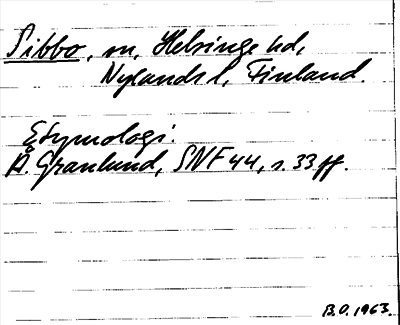 Sibbo, sn, Helsinge hd,
Nylands l, Finland.
Etymologi.
Å. Granlund, SNF 44, s. 33 ff.
B.O. 1963.